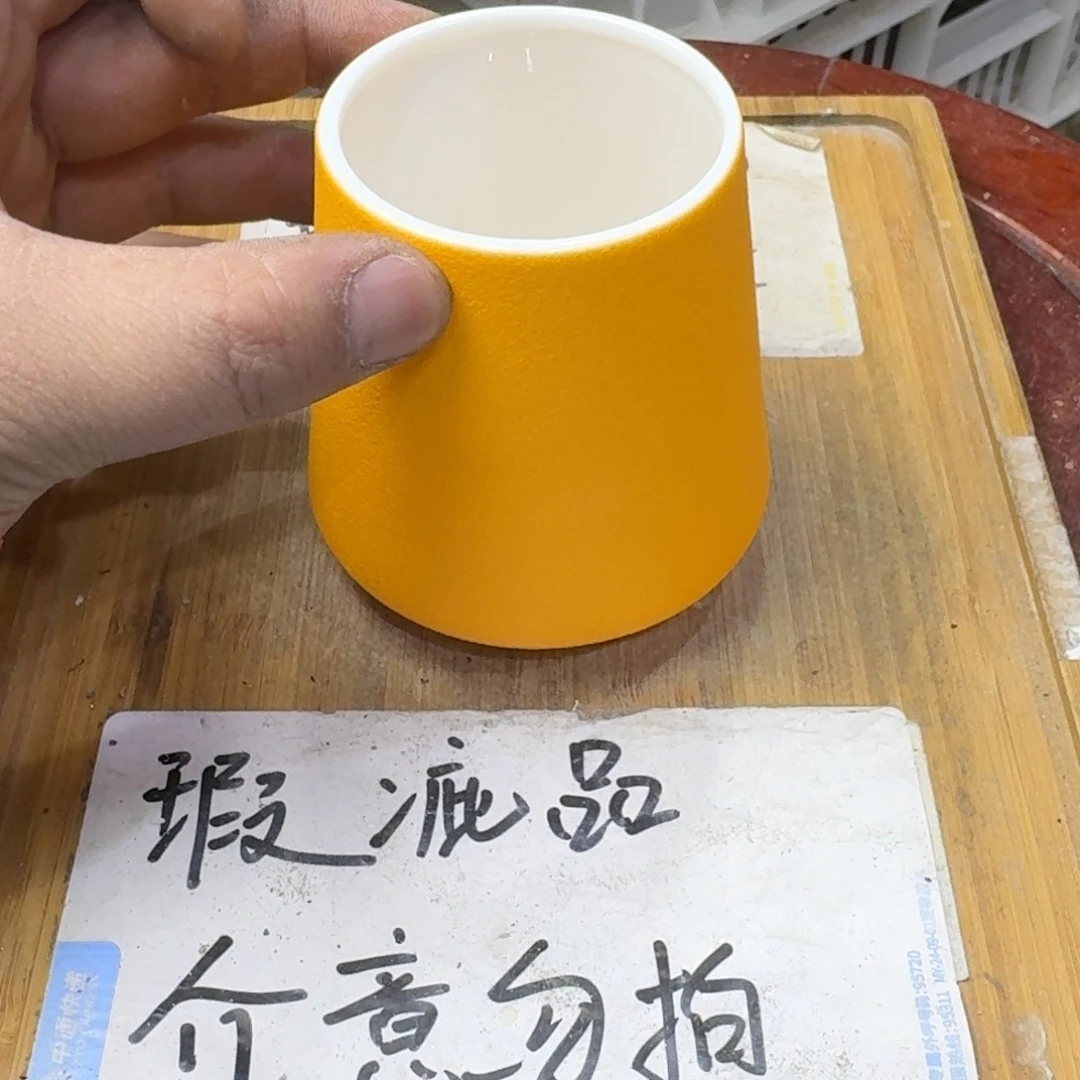 瑕疵品
介意勿拍
中通快递
95720
95311